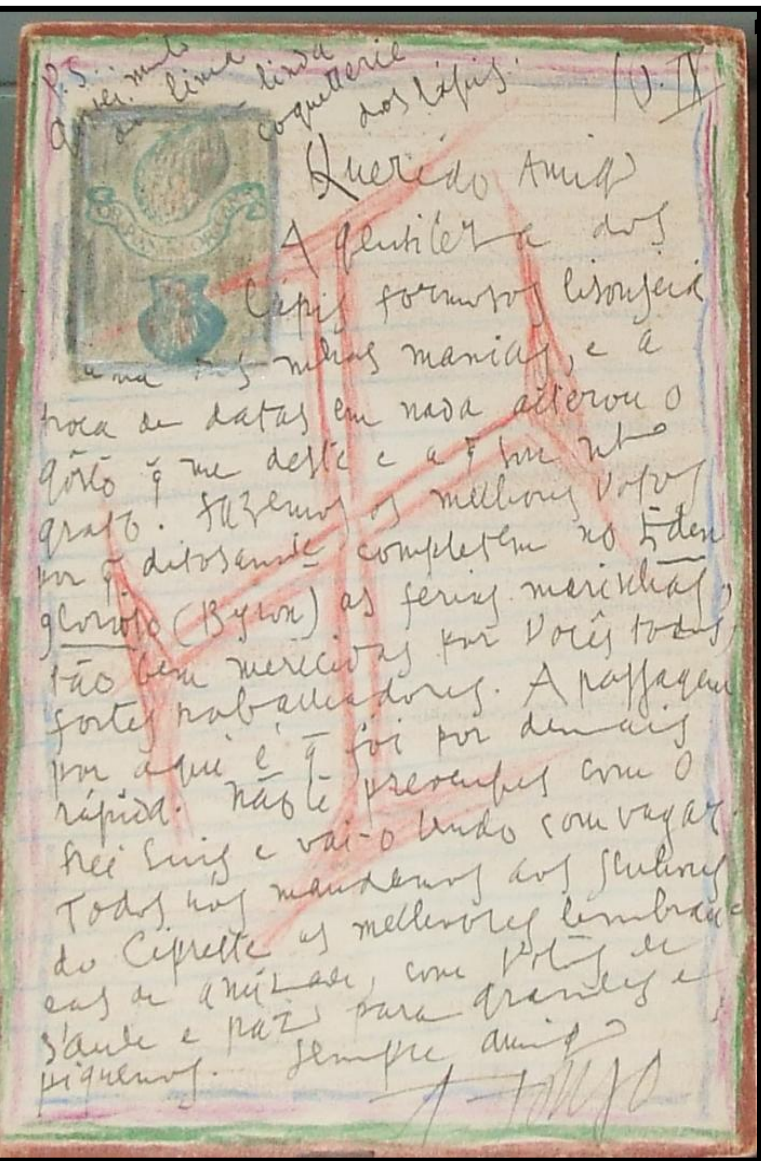 P.S.:
linda
coquetterie
dos lápis.
10.IX
Querido Amigo
A gentileza dos
lápis formosos lisonjeia
uma das minhas manias, e a
troca de datas em nada alterou o
gôsto q̃ me deste e a q̃ sou mto
grato. Fazemos os melhores votos
por q̃ ditosamte completem no Éden
glorioso (Byron) as ferias marinhas,
tão bem merecidas por Vocês todos,
fortes trabalhadores. A passagem
por aqui é q̃ foi por demais
rápida. Não te preocupes com o
frei Luis e vai-o lendo com vagar.
Todos nós mandamos aos senhores
do Cipreste as melhores lembran-
ças de amizade, com votos de
saude e paz para grandes e
piquenos. Sempre amigo